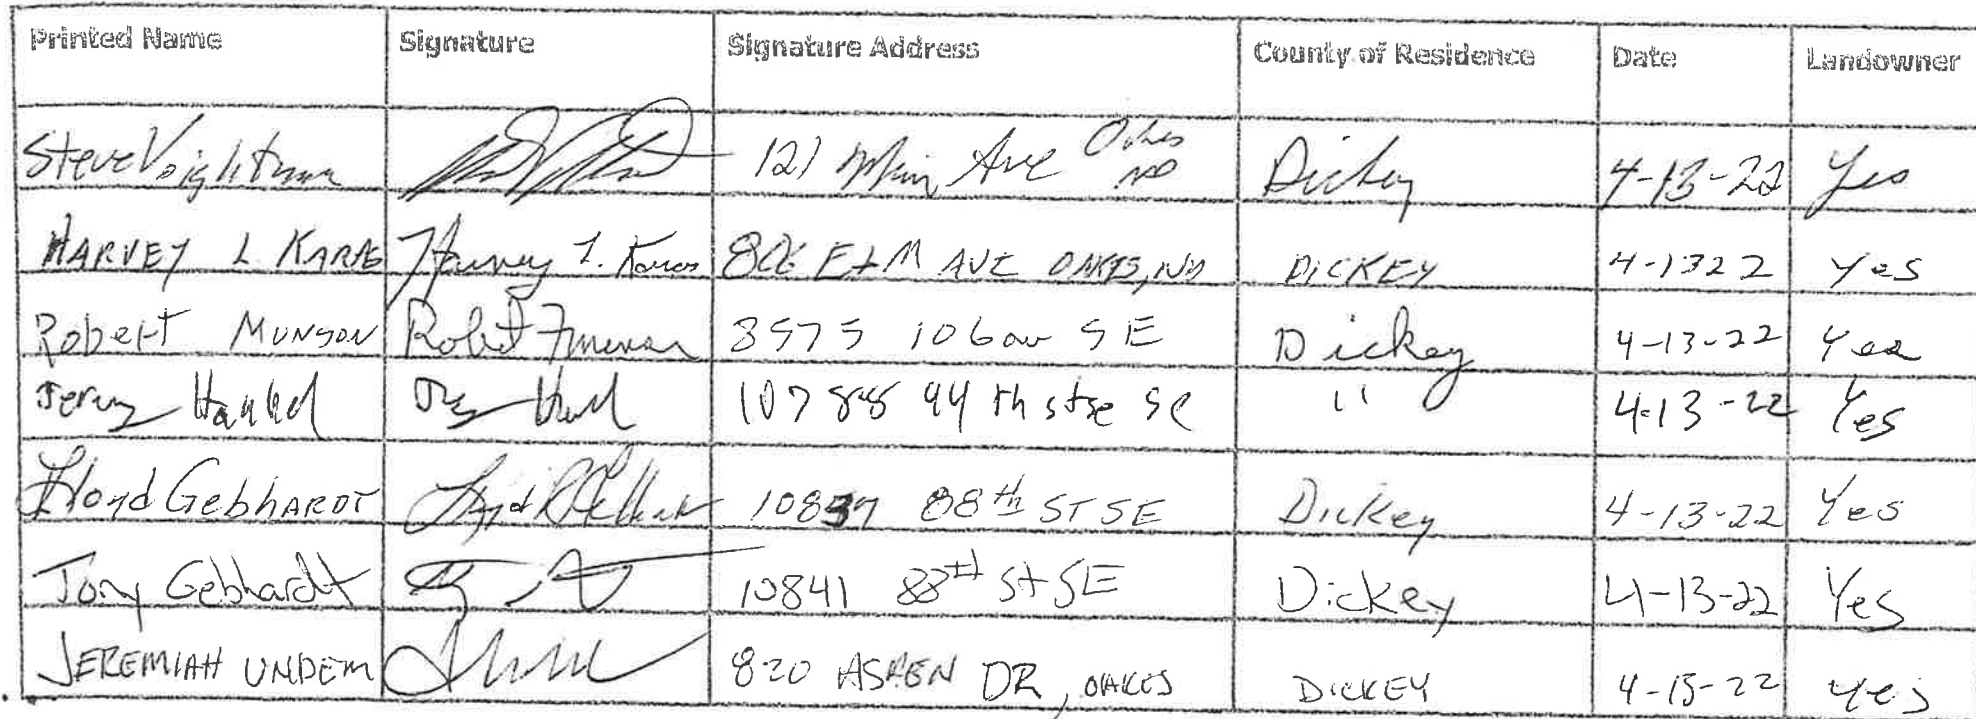 Printed Name Signature Signature Address County of Residence Date Landowner
Steve Voightman 121 Main Ave Oakes ND Dickey 4-13-22 Yes
HARVEY L KARAS Harvey L. Karas 806 ELM AVE OAKES, ND DICKEY 4-1322 Yes
Robert MUNSON Robert Munson 8575 106 av SE Dickey 4-13-22 Yes
Jerry Hankel 10788 94 th SE " 4-13-22 Yes
Lloyd GebhARDT 10837 88th ST SE Dickey 4-13-22 Yes
Tony Gebhardt 10841 88th St SE Dickey 4-13-22 Yes
JEREMIAH UNDEM 820 ASPEN DR, OAKES DICKEY 4-13-22 yes